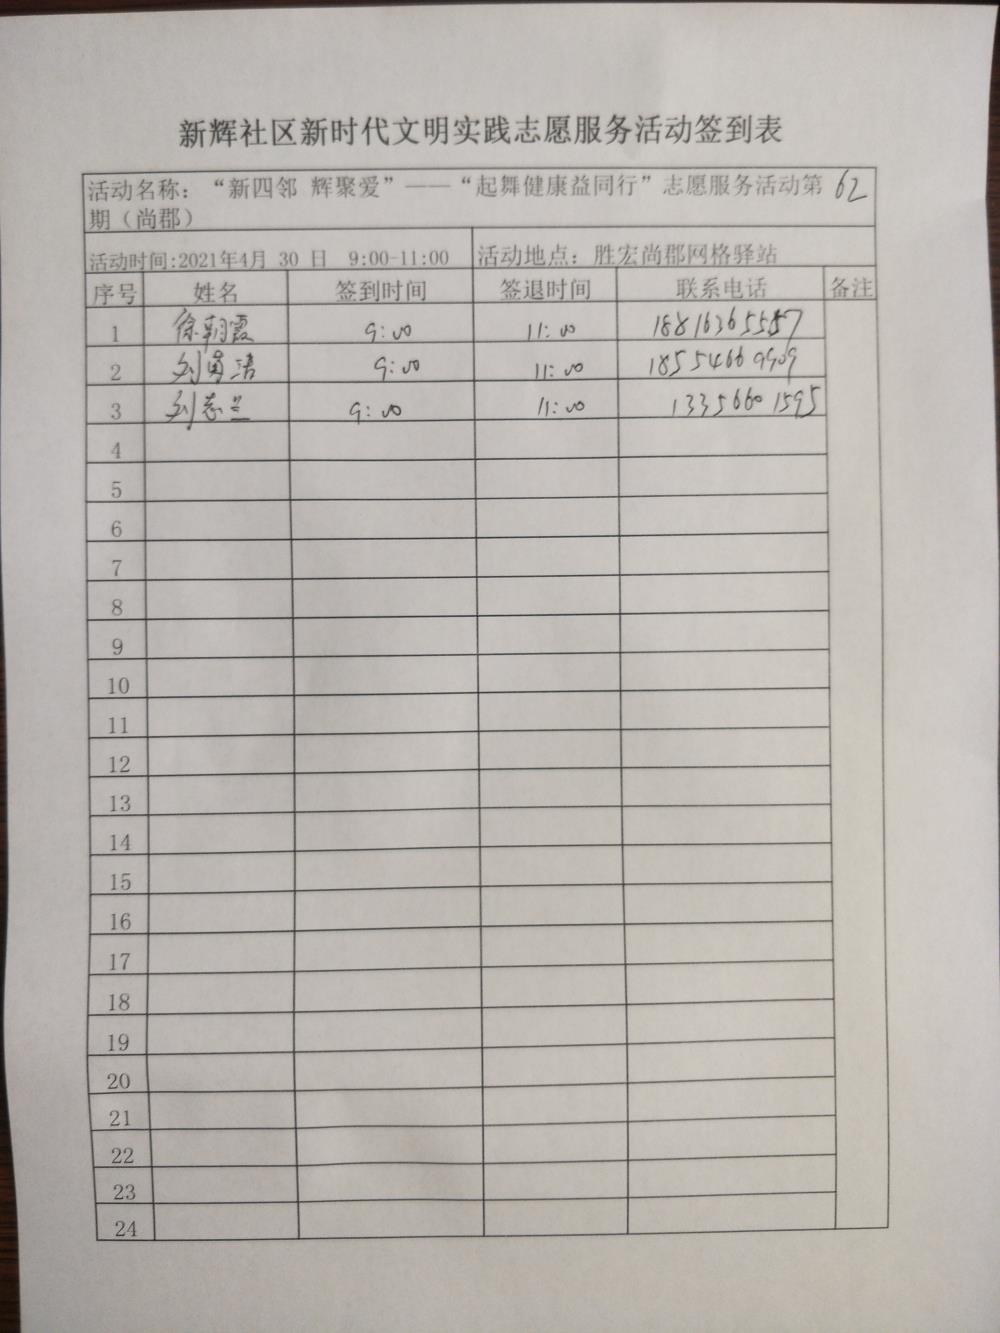 新辉社区新时代文明实践志愿服务活动签到表
活动名称：“新四邻 辉聚爱”——“起舞健康益同行”志愿服务活动第62
期（尚郡）
活动时间:2021年4月 30 日 9:00-11:00 活动地点：胜宏尚郡网格驿站
序号 姓名 签到时间 签退时间 联系电话 备注
1 徐朝霞 9:00 11:00 18816365557
2 刘 洁 9:00 11:00 18554669909
3 刘志兰 9:00 11:00 13356601595
4
5
6
7
8
9
10
11
12
13
14
15
16
17
18
19
20
21
22
23
24